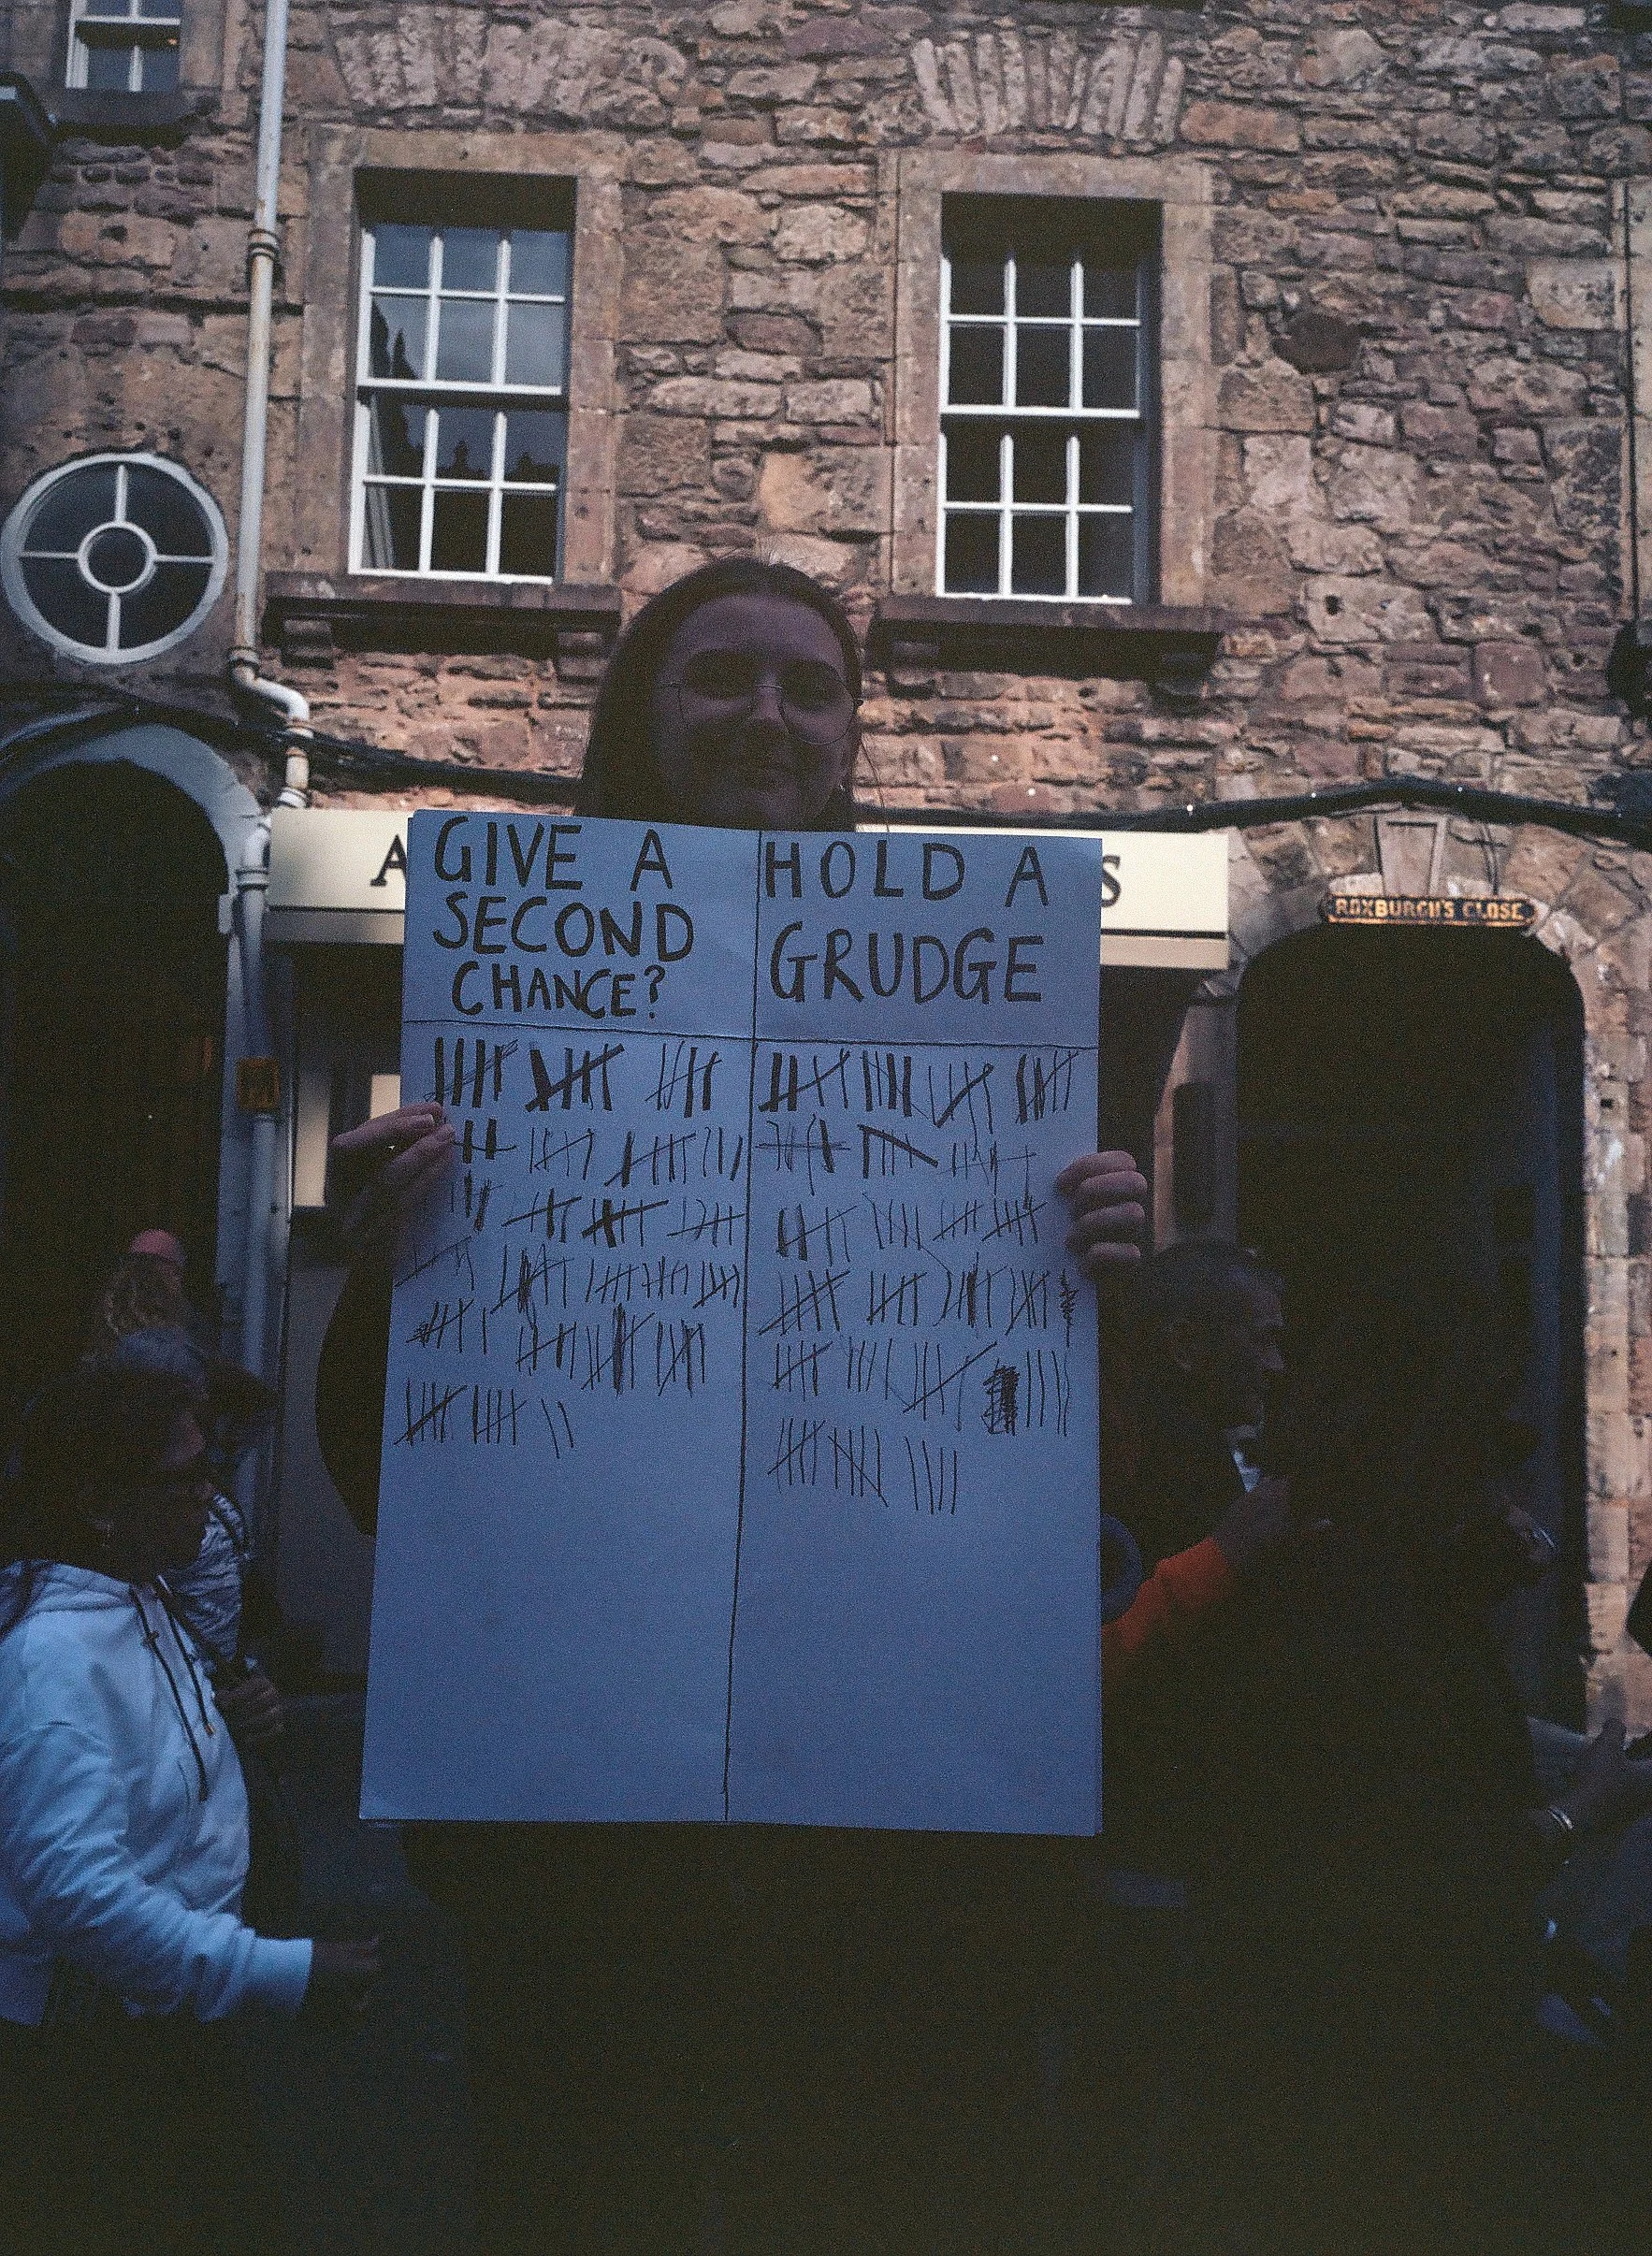 GIVE A
SECOND
CHANCE?
HOLD A
GRUDGE
A
S
ROXBURGH'S CLOSE